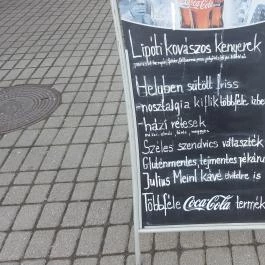 Coca-Cola
Lipóti kovászos kenyerek
Helyben sütött friss
-nosztalgia kiflik többféle ízbe
-házi rétesek
Széles szendvics választék
Gluténmentes, tejmentes pékáru
Julius Meinl kávé elvitelre is
Többféle Coca-Cola termék